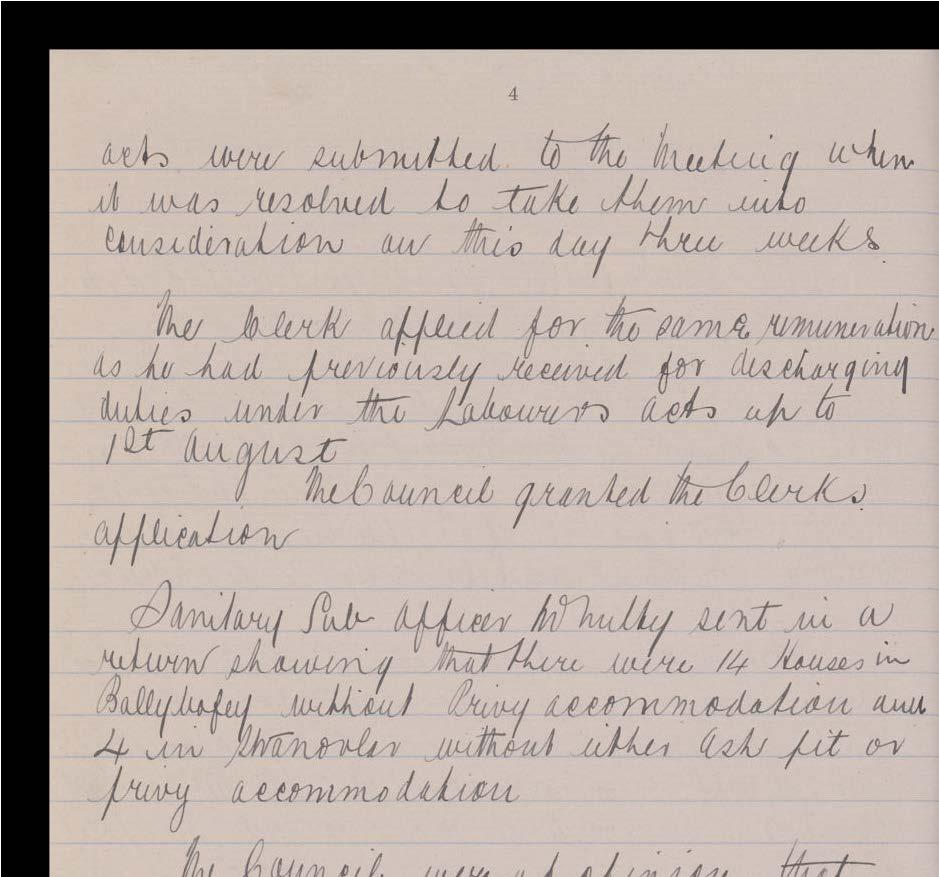 4
acts were submitted to the Meeting when
it was resolved to take them into
consideration on this day three weeks.
The Clerk applied for the same remuneration
as he had previously received for discharging
duties under the Labourers acts up to
1st August
The Council granted the Clerks
application
Sanitary Sub Officer McNulty sent in a
return showing that there were 14 Houses in
Ballybofey without Privy accommodation and
4 in Stranorlar without either Ash pit or
privy accommodation
The Council were of opinion that